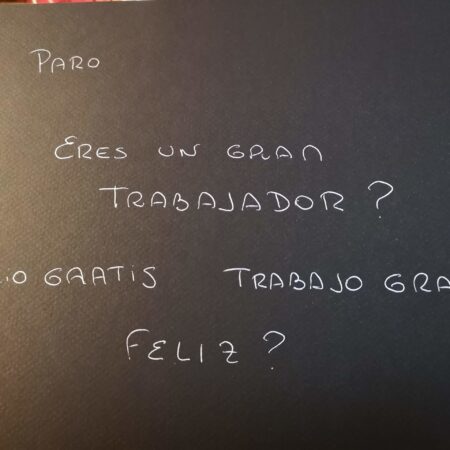 PARO
ERES UN GRAN
TRABAJADOR ?
GRATIS TRABAJO GRA
FELIZ ?